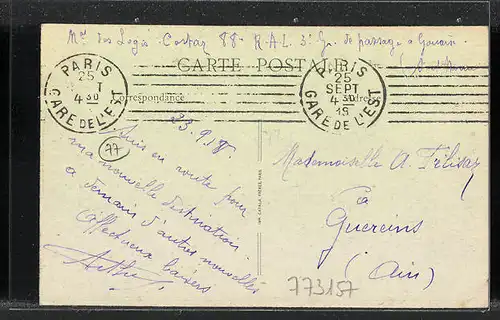 des Logis Costaz 88e R.A.L. 3e Gr. de passage a
CARTE POSTALE
Correspondance
PARIS
25
4 30
GARE DE L'EST
PARIS
25
SEPT
4 30
18
GARE DE L'EST
23.9.18.
77
Suis en route pour
ma nouvelle destination
a demain d'autres nouvelles
Affectueux baisers
Mademoiselle A.
a
Guereins
(Ain)
773157